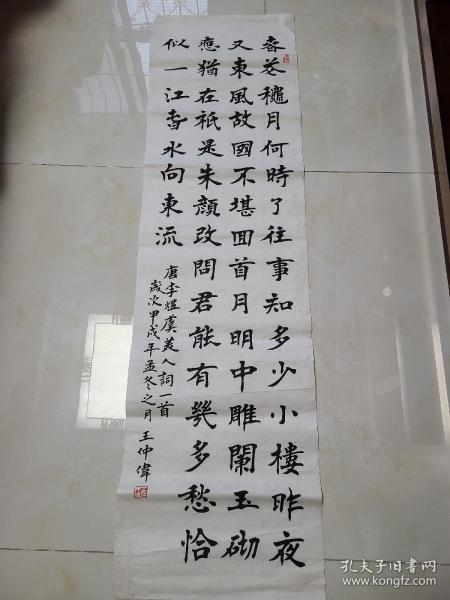 春花穐月何時了往事知多少小樓昨夜
又東風故國不堪回首月明中雕闌玉砌
應猶在祇是朱顏改問君能有幾多愁恰
似一江春水向東流
唐李煜虞美人詞一首
歲次甲戌年孟冬之月 王仲偉
孔夫子旧书网
www.kongfz.com